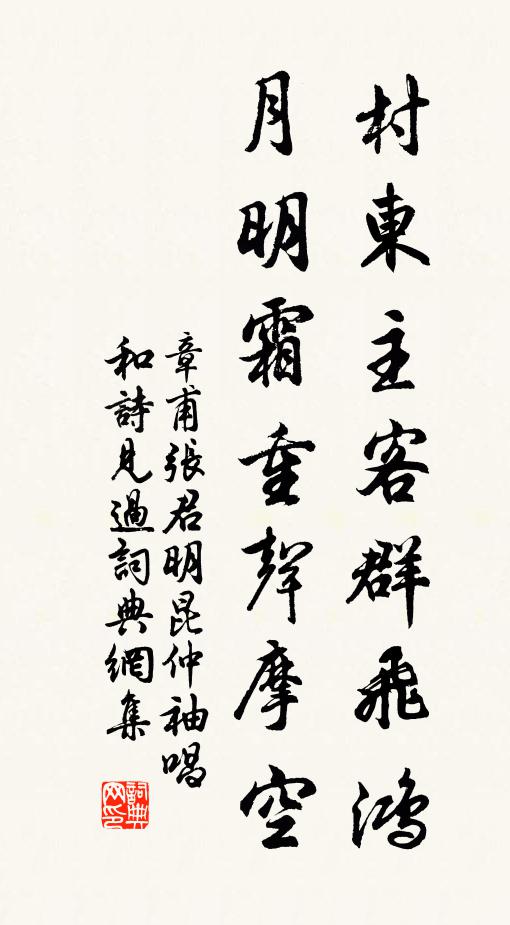 村東主客群飛鴻
月明霜重聲摩空
章甫張君明昆仲袖唱
和詩見過詞典網集
詞典网印